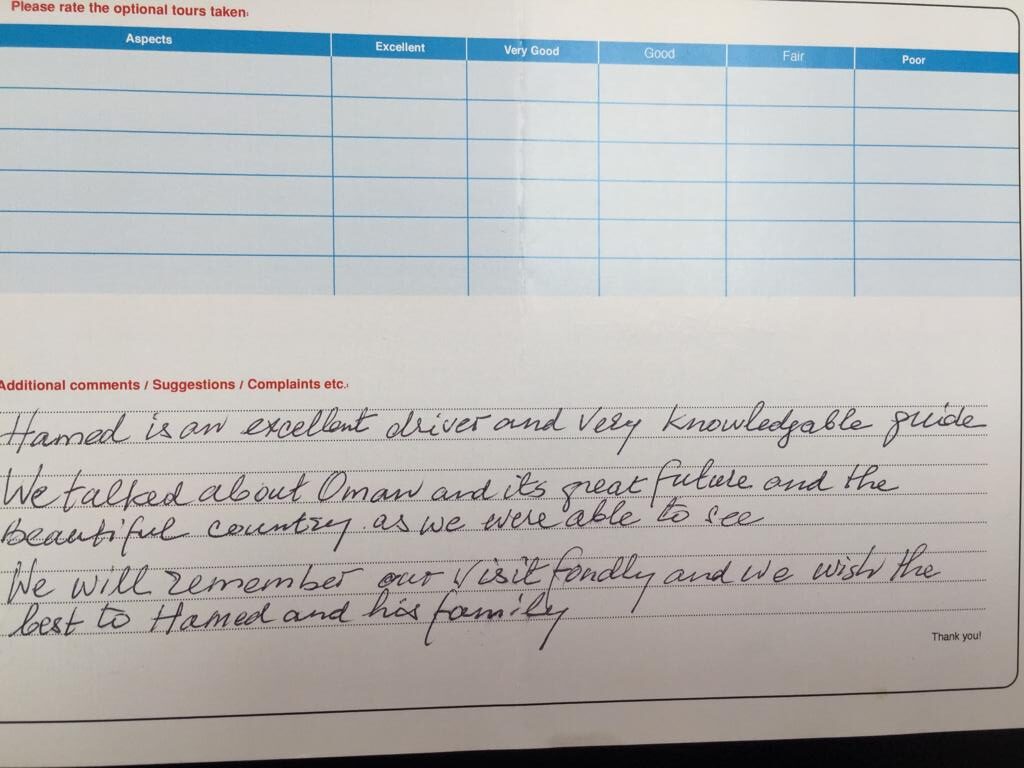 Please rate the optional tours taken:
Aspects Excellent Very Good Good Fair Poor
Additional comments / Suggestions / Complaints etc.:
Hamed is an excellent driver and very knowledgable guide
We talked about Oman and its great future and the
beautiful country as we were able to see
We will remember our visit fondly and we wish the
best to Hamed and his family
Thank you!